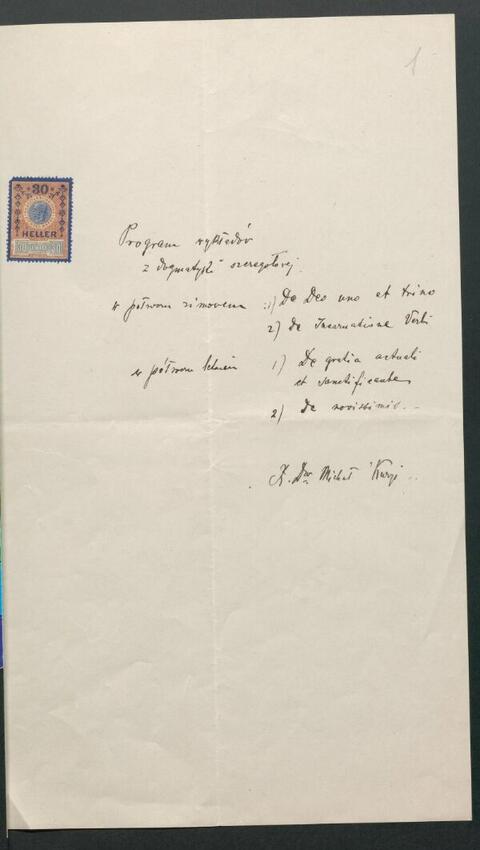 1
30
HELLER
Program wykładów
z dogmatyki szczegółowej.
w półroczu zimowem :1) De Deo uno et trino
2) de Incarnatione Verbi
w półroczu letniem 1) De gratia actuali
et sanctificante
2) de novissimis.
X. Dr Michał